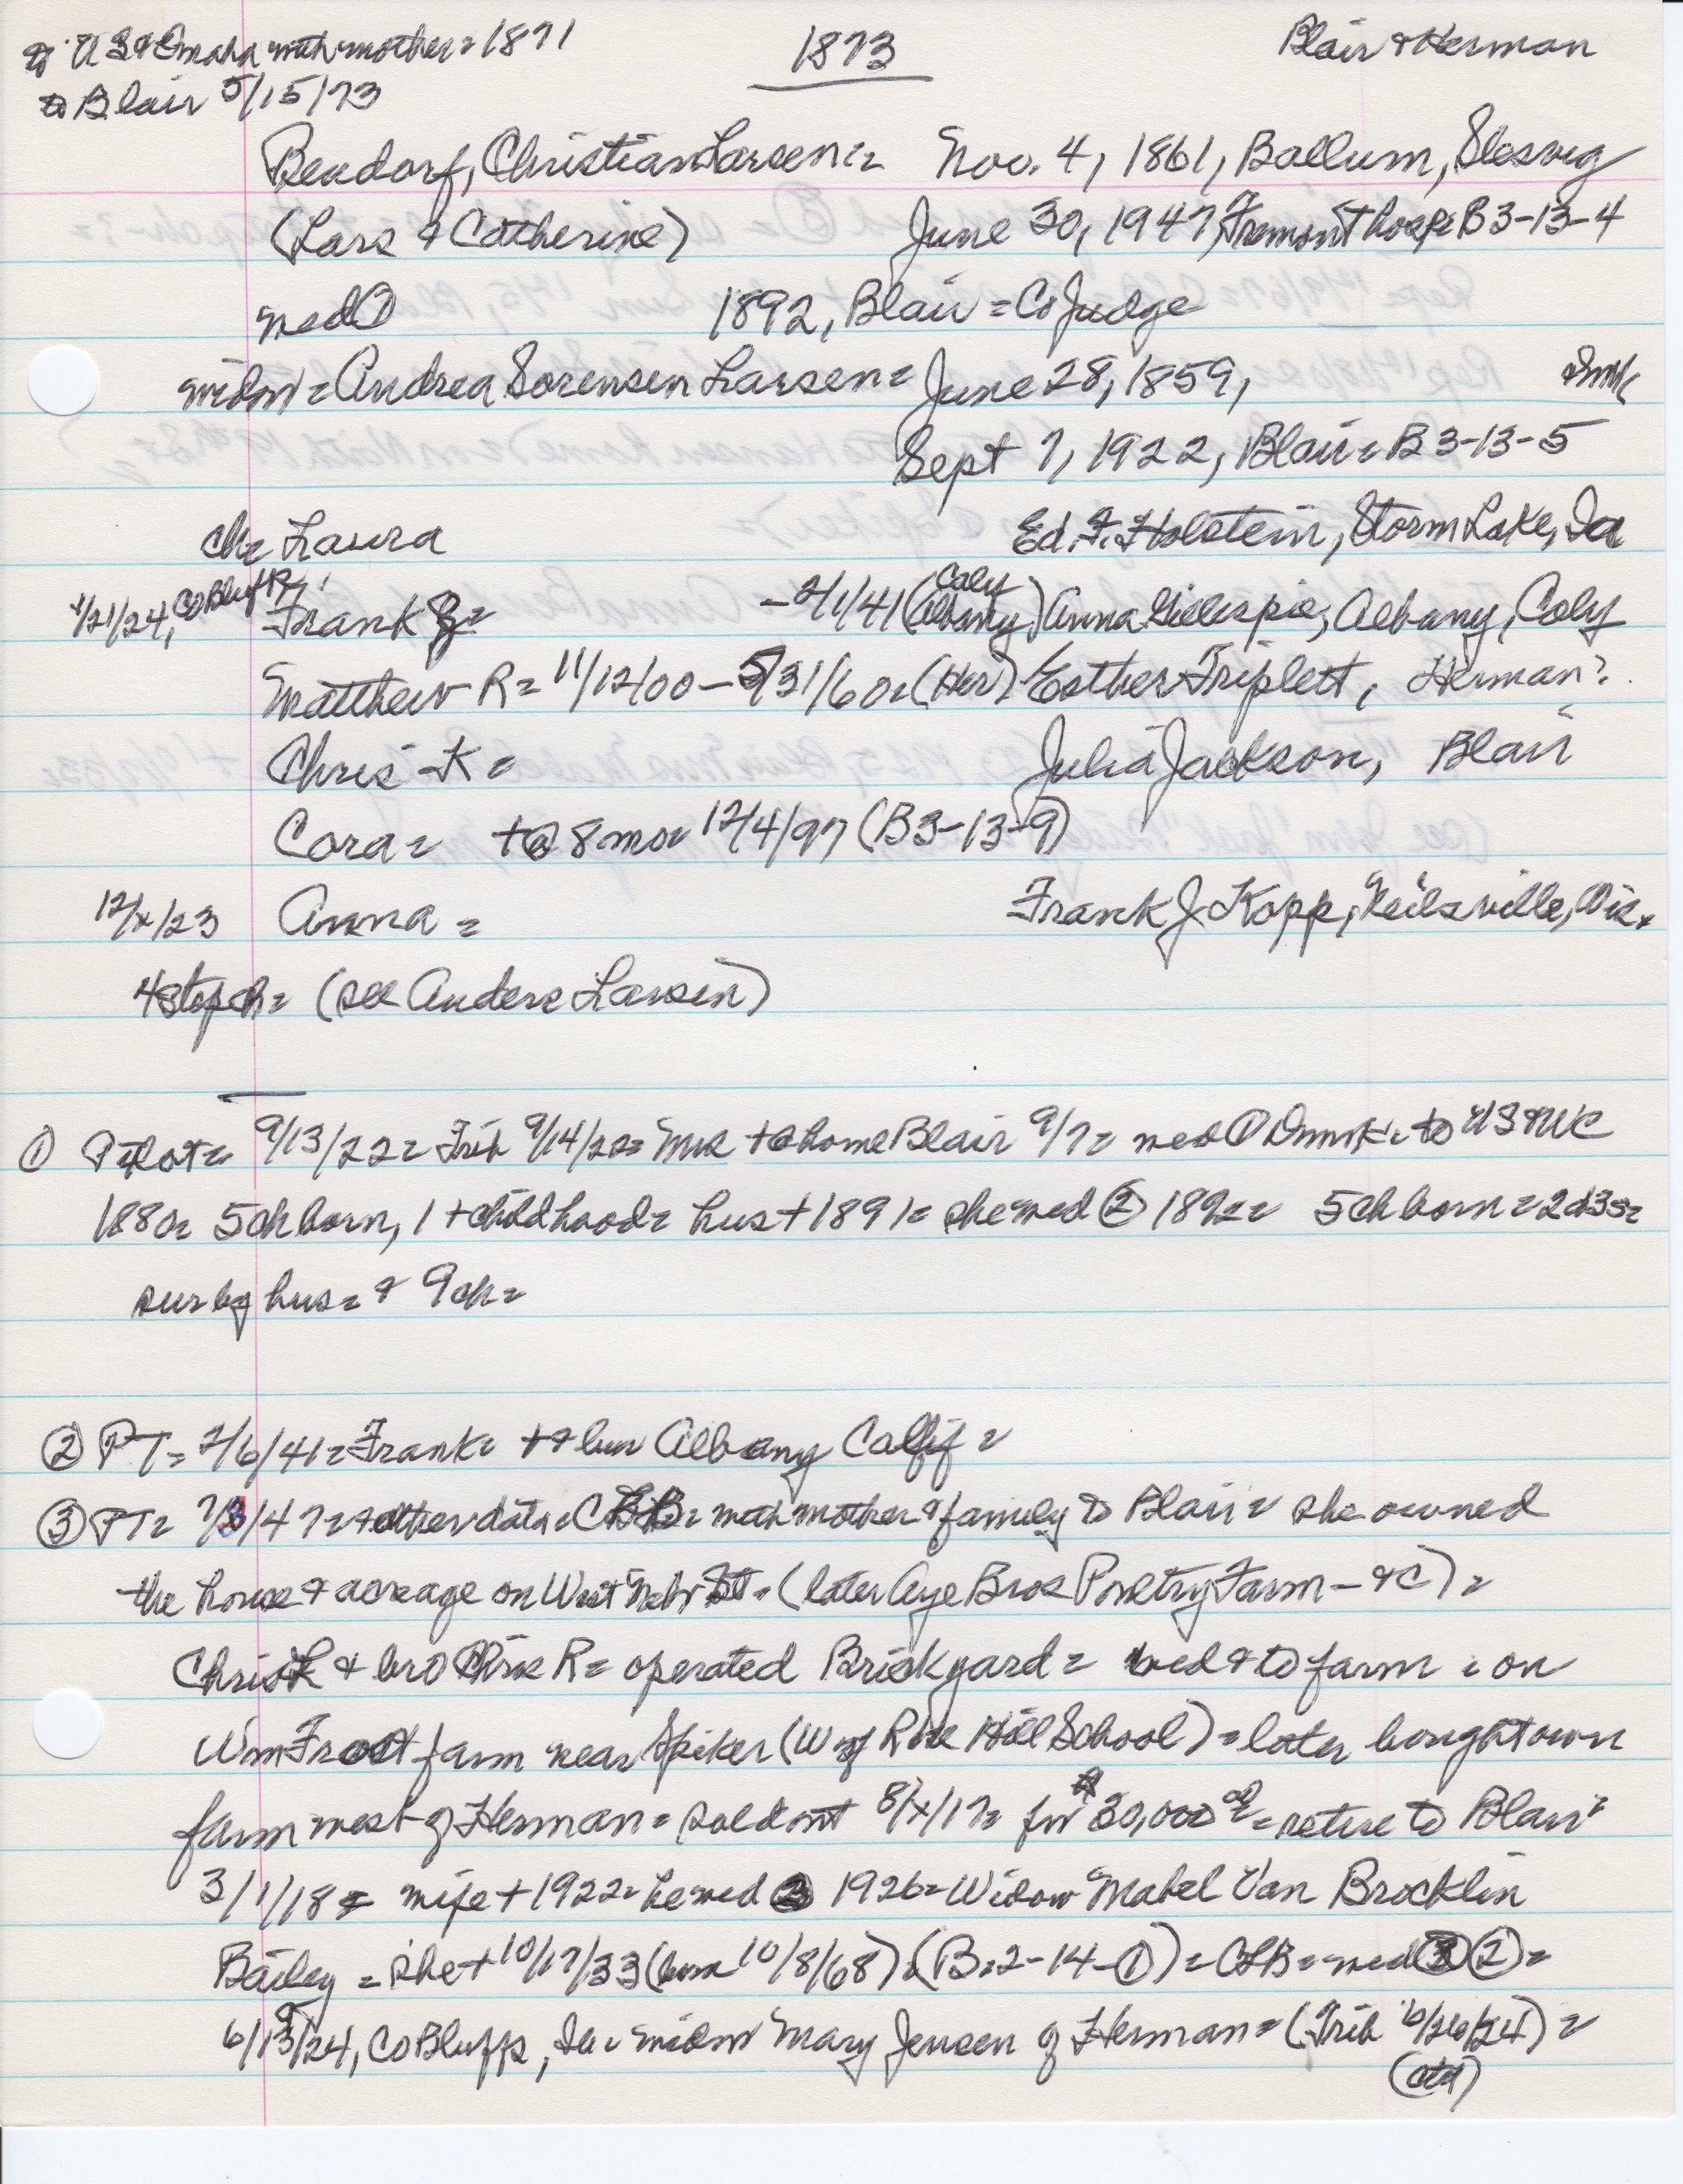 to US & Omaha with mother = 1871
1873
Blair & Herman
to Blair 5/15/73
Bendorf, Christian Larsen = Nov. 4, 1861, Ballum, Slesvig
(Lars & Catherine) June 30, 1947, Fremont hosp = B 3-13-4
med ① 1892, Blair = Co Judge
widow = Andrea Sorensen Larsen = June 28, 1859, Dmk
Sept 7, 1922, Blair = B 3-13-5
ch = Laura Ed. F. Holstein, Storm Lake, Ia
1/21/24, Co Bluffs Frank = -2/1/41 (Albany Caly) Anna Gillespie, Albany, Caly
Matthew R = 11/12/00 - 5/31/60 = (Her) Esther Triplett, Herman?
Chris K = Julia Jackson, Blair
Cora = +@ 8 mo = 12/4/97 (B3-13-9)
12/x/23 Anna = Frank J Kopp, Neilsville, Wis.
4 step ch = (see Anders Larsen)
① Pilot = 9/13/22 = Trib 9/14/22 = Mrs +@ home Blair 9/7 = med ① Dnmk = to US & WC
1880 = 5 ch born, 1 + childhood = hus + 1891 = she med ② 1892 = 5 ch born = 2d 3s =
sur by hus = & 9 ch =
② PT = 2/6/41 = Frank = + & bur Albany Calif =
③ PT = 7/3/47 = & other data = CLB = with mother & family to Blair = she owned
the house & acreage on West Nebr St = (later Aye Bros Poultry Farm - &C) =
Chris L & bro Chris R = operated Brickyard = wed & to farm = on
Wm Frost farm near Spiker (W of Rose Hill School) = later bought own
farm west of Herman = sold out 8/x/17 = for $30,000 00 = retire to Blair =
3/1/18 = wife + 1922 = he wed 1926 = Widow Mabel Van Brocklin
Bailey = she + 10/17/33 (born 10/8/68) (B = 2-14-①) = CLB = med ② =
6/13/24, Co Bluffs, Ia = widow Mary Jensen of Herman = (Trib 6/26/24) =
(ctd)